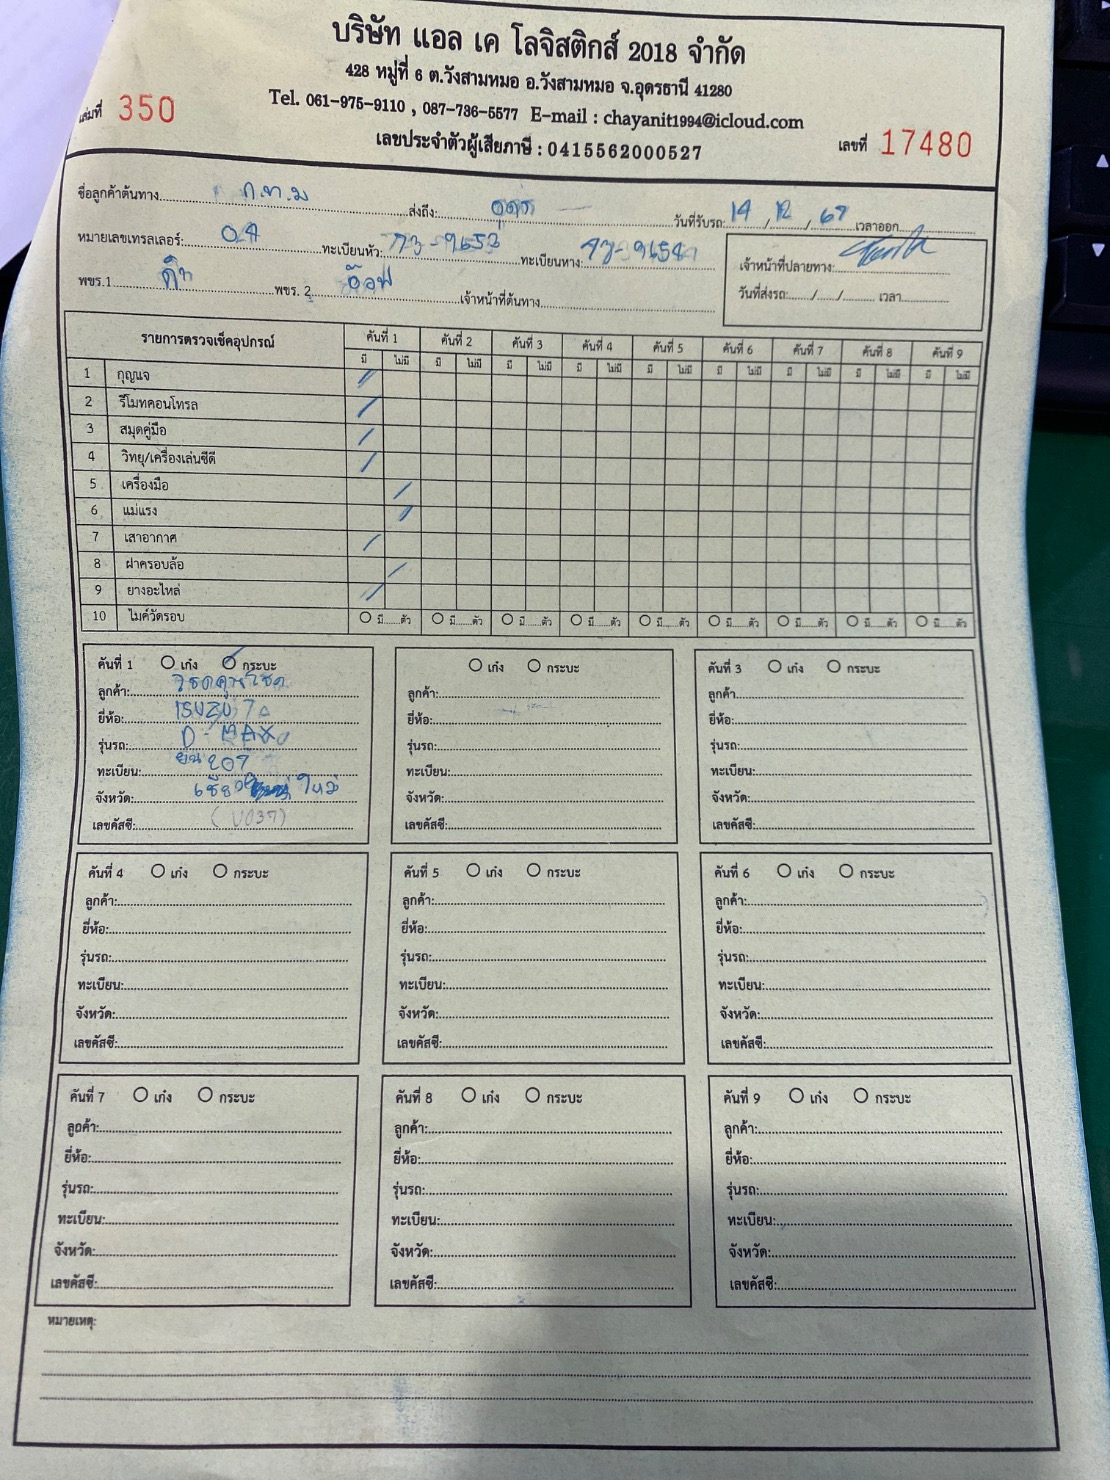 บริษัท แอล เค โลจิสติกส์ 2018 จำกัด
428 หมู่ที่ 6 ต.วังสามหมอ อ.วังสามหมอ จ.อุดรธานี 41280
Tel. 061-975-9110 , 087-736-5577 E-mail : chayanit1994@icloud.com
เลขประจำตัวผู้เสียภาษี : 0415562000527
เล่มที่ 350
เลขที่ 17480
ชื่อลูกค้าต้นทาง ก.ท.ม ส่งถึง: อุดร วันที่รับรถ: 14 / 12 / 67 เวลาออก
หมายเลขเทรลเลอร์: ทะเบียนหัว: 73-9653 ทะเบียนหาง: 73-9654
เจ้าหน้าที่ปลายทาง:
พขร.1 พขร. 2 อ๊อฟ เจ้าหน้าที่ต้นทาง
วันที่ส่งรถ: / / เวลา
รายการตรวจเช็คอุปกรณ์ คันที่ 1 คันที่ 2 คันที่ 3 คันที่ 4 คันที่ 5 คันที่ 6 คันที่ 7 คันที่ 8 คันที่ 9
มี ไม่มี มี ไม่มี มี ไม่มี มี ไม่มี มี ไม่มี มี ไม่มี มี ไม่มี มี ไม่มี มี ไม่มี
1 กุญแจ /
2 รีโมทคอนโทรล /
3 สมุดคู่มือ /
4 วิทยุ/เครื่องเล่นซีดี /
5 เครื่องมือ /
6 แม่แรง /
7 เสาอากาศ /
8 ฝาครอบล้อ /
9 ยางอะไหล่ /
10 ไมค์วัดรอบ มี ตัว มี ตัว มี ตัว มี ตัว มี ตัว มี ตัว มี ตัว มี ตัว มี ตัว
คันที่ 1 เก๋ง กระบะ
ลูกค้า:
ยี่ห้อ: ISUZU
รุ่นรถ: D-MAX
ทะเบียน: 207
จังหวัด: เชียงใหม่
เลขคัสซี: (V037)
เก๋ง กระบะ
ลูกค้า:
ยี่ห้อ:
รุ่นรถ:
ทะเบียน:
จังหวัด:
เลขคัสซี:
คันที่ 3 เก๋ง กระบะ
ลูกค้า
ยี่ห้อ:
รุ่นรถ:
ทะเบียน:
จังหวัด:
เลขคัสซี:
คันที่ 4 เก๋ง กระบะ
ลูกค้า:
ยี่ห้อ:
รุ่นรถ:
ทะเบียน:
จังหวัด:
เลขคัสซี:
คันที่ 5 เก๋ง กระบะ
ลูกค้า:
ยี่ห้อ:
รุ่นรถ:
ทะเบียน:
จังหวัด:
เลขคัสซี:
คันที่ 6 เก๋ง กระบะ
ลูกค้า:
ยี่ห้อ:
รุ่นรถ:
ทะเบียน:
จังหวัด:
เลขคัสซี:
คันที่ 7 เก๋ง กระบะ
ลูกค้า:
ยี่ห้อ:
รุ่นรถ:
ทะเบียน:
จังหวัด:
เลขคัสซี:
คันที่ 8 เก๋ง กระบะ
ลูกค้า:
ยี่ห้อ:
รุ่นรถ:
ทะเบียน:
จังหวัด:
เลขคัสซี:
คันที่ 9 เก๋ง กระบะ
ลูกค้า:
ยี่ห้อ:
รุ่นรถ:
ทะเบียน:
จังหวัด:
เลขคัสซี:
หมายเหตุ: